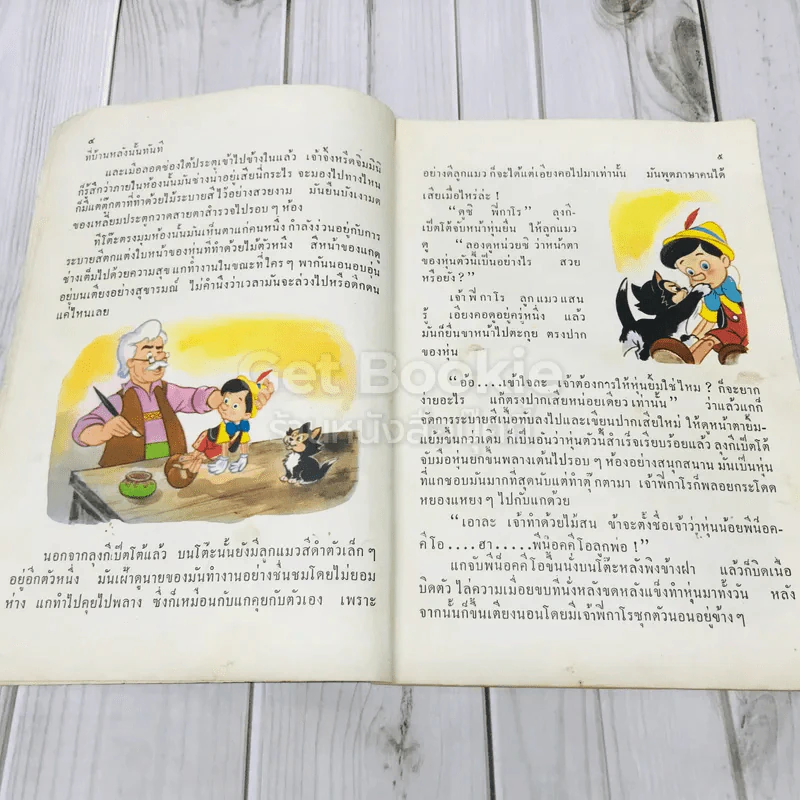 ๔
ที่บ้านหลังนั้นทันที
และเมื่อลอดช่องใต้ประตูเข้าไปข้างในแล้ว เจ้าจิ้งหรีดจิมมินี่
ก็รู้สึกว่าภายในห้องนั้นมันช่างน่าอยู่เสียนี่กระไร จะมองไปทางไหน
ก็มีแต่ตุ๊กตาที่ทำด้วยไม้ระบายสีไว้อย่างสวยงาม มันยืนบังเงามืด
ของเหลี่ยมประตูกวาดสายตาสำรวจไปรอบๆ ห้อง
ที่โต๊ะตรงมุมห้องนั้นมันเห็นตาแก่คนหนึ่ง กำลังง่วนอยู่กับการ
ระบายสีตกแต่งใบหน้าของหุ่นที่ทำด้วยไม้ตัวหนึ่ง สีหน้าของแกดู
ช่างเต็มไปด้วยความสุข แกทำงานในขณะที่ใครๆ พากันนอนอบอุ่น
อยู่บนเตียงอย่างสุขารมณ์ ไม่คำนึงว่าเวลามันจะล่วงไปหรือดึกดื่น
แค่ไหนเลย
นอกจากลุงกีเป็ตโต้แล้ว บนโต๊ะนั้นยังมีลูกแมวสีดำตัวเล็กๆ
อยู่อีกตัวหนึ่ง มันเฝ้าดูนายของมันทำงานอย่างชื่นชมโดยไม่ยอม
ห่าง แกทำไปคุยไปพลาง ซึ่งก็เหมือนกับแกคุยกับตัวเอง เพราะ
๕
อย่างดีลูกแมว ก็จะได้แต่เอียงคอไปมาเท่านั้น มันพูดภาษาคนได้
เสียเมื่อไหร่ล่ะ !
“ดูซิ ฟิกาโร” ลุงกี-
เป็ตโต้จับหน้าหุ่นขึ้น ให้ลูกแมว
ดู “ลองดูหน่วยซิ ว่าหน้าตา
ของหุ่นตัวนี้เป็นอย่างไร สวย
หรือยัง ? ”
เจ้าฟิกาโร ลูกแมวแสน
รู้ เอียงคอดูอยู่ครู่หนึ่ง แล้ว
มันก็ยื่นขาหน้าไปตะกุย ตรงปาก
ของหุ่น
“อ้อ....เข้าใจละ เจ้าต้องการให้หุ่นยิ้มใช่ไหม ? ก็จะยาก
ง่ายอะไร แก้ตรงปากเสียหน่อยเดียวเท่านั้น” ว่าแล้วแกก็
จัดการระบายสีเนื้อทับลงไปและเขียนปากเสียใหม่ ให้ดูหน้าตายิ้ม-
แย้มขึ้นกว่าเดิม ก็เป็นอันว่าหุ่นตัวนี้สำเร็จเรียบร้อยแล้ว ลุงกีเป็ตโต้
จับมือหุ่นยกขึ้นพลางเต้นไปรอบๆ ห้องอย่างสนุกสนาน มันเป็นหุ่น
ที่แกชอบมันมากที่สุดนับแต่ทำตุ๊กตามา เจ้าฟิกาโรก็พลอยกระโดด
หยองแหยงๆ ไปกับแกด้วย
“เอาละ เจ้าทำด้วยไม้สน ข้าจะตั้งชื่อเจ้าว่าหุ่นน้อยพีน็อค-
คีโอ....ฮา.....พีน็อคคีโอลูกพ่อ ! ”
แกจับพีน็อคคีโอขึ้นนั่งบนโต๊ะหลังพิงข้างฝา แล้วก็บิดเนื้อ
บิดตัว ไล่ความเมื่อยขบที่นั่งหลังขดหลังแข็งทำหุ่นมาทั้งวัน หลัง
จากนั้นก็ขึ้นเตียงนอนโดยมีเจ้าฟิกาโรซุกตัวนอนอยู่ข้างๆ
Get Bookie